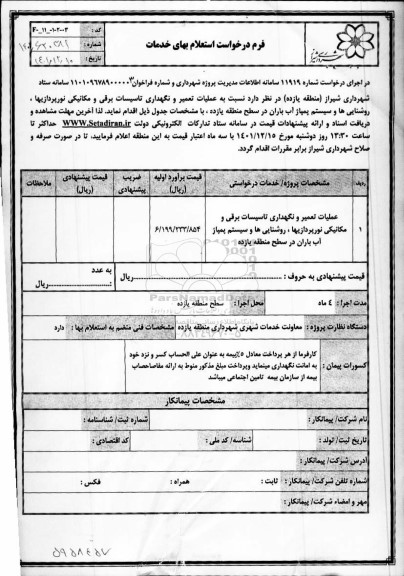 فرم درخواست استعلام بهای خدمات
کد : F-۰_۱۱_۰۱-۲۰۰-۳
شماره :
تاریخ : ۱۴۰۱/۱۲/۱۰
در اجرای درخواست شماره ۱۱۹۱۹ سامانه اطلاعات مدیریت پروژه شهرداری و شماره فراخوان سامانه ستاد
شهرداری شیراز (منطقه یازده) در نظر دارد نسبت به عملیات تعمیر و نگهداری تاسیسات برقی و مکانیکی نورپردازیها ،
روشنایی ها و سیستم پمپاژ آب باران در سطح منطقه یازده ، با مشخصات جدول ذیل اقدام نماید. لذا آخرین مهلت مشاهده و
دریافت اسناد و ارائه پیشنهادات قیمت در سامانه ستاد تدارکات الکترونیکی دولت WWW.Setadiran.ir حداکثر تا
ساعت ۱۳:۳۰ روز دوشنبه مورخ ۱۴۰۱/۱۲/۱۵ با سه ماه اعتبار قیمت به این منطقه اعلام فرمایید، تا در صورت صرفه و
صلاح شهرداری شیراز برابر مقررات اقدام گردد.
ردیف مشخصات پروژه/ خدمات درخواستی قیمت برآورد اولیه (ریال) ضریب پیشنهادی قیمت پیشنهادی (ریال) ملاحظات
۱ عملیات تعمیر و نگهداری تاسیسات برقی و
مکانیکی نورپردازیها ، روشنایی ها و سیستم پمپاژ
آب باران در سطح منطقه یازده
۶/۱۹۹/۲۳۳/۸۵۴
قیمت پیشنهادی به حروف : ریال
به عدد : ریال
مدت اجرا : ۴ ماه محل اجرا : سطح منطقه یازده
دستگاه نظارت پروژه : معاونت خدمات شهری شهرداری منطقه یازده مشخصات فنی منضم به استعلام بها : دارد
کسورات پیمان : کارفرما از هر پرداخت معادل ۵٪ بیمه به عنوان علی الحساب کسر و نزد خود
به امانت نگهداری مینماید وپرداخت مبلغ مذکور منوط به ارائه مفاصاحساب
بیمه از سازمان بیمه تامین اجتماعی میباشد
مشخصات پیمانکار
نام شرکت/ پیمانکار : شماره ثبت/ شناسنامه :
تاریخ ثبت/ تولد : شناسه/ کد ملی : کد اقتصادی :
آدرس شرکت/ پیمانکار :
شماره تلفن شرکت/ پیمانکار : ثابت : همراه : فکس :
مهر و امضاء شرکت/ پیمانکار :